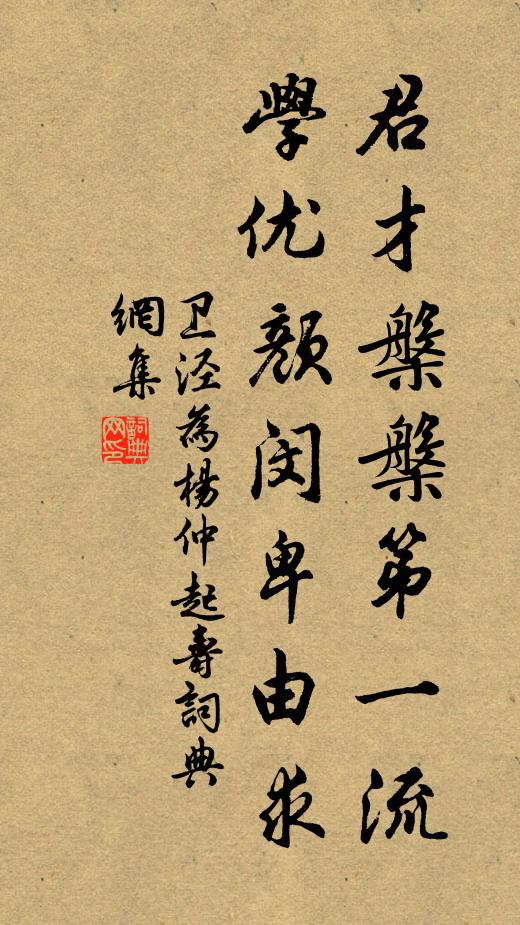 君才槃槃第一流
學优顏闵卑由求
卫泾為楊仲起壽詞典
網集
詞典
网印